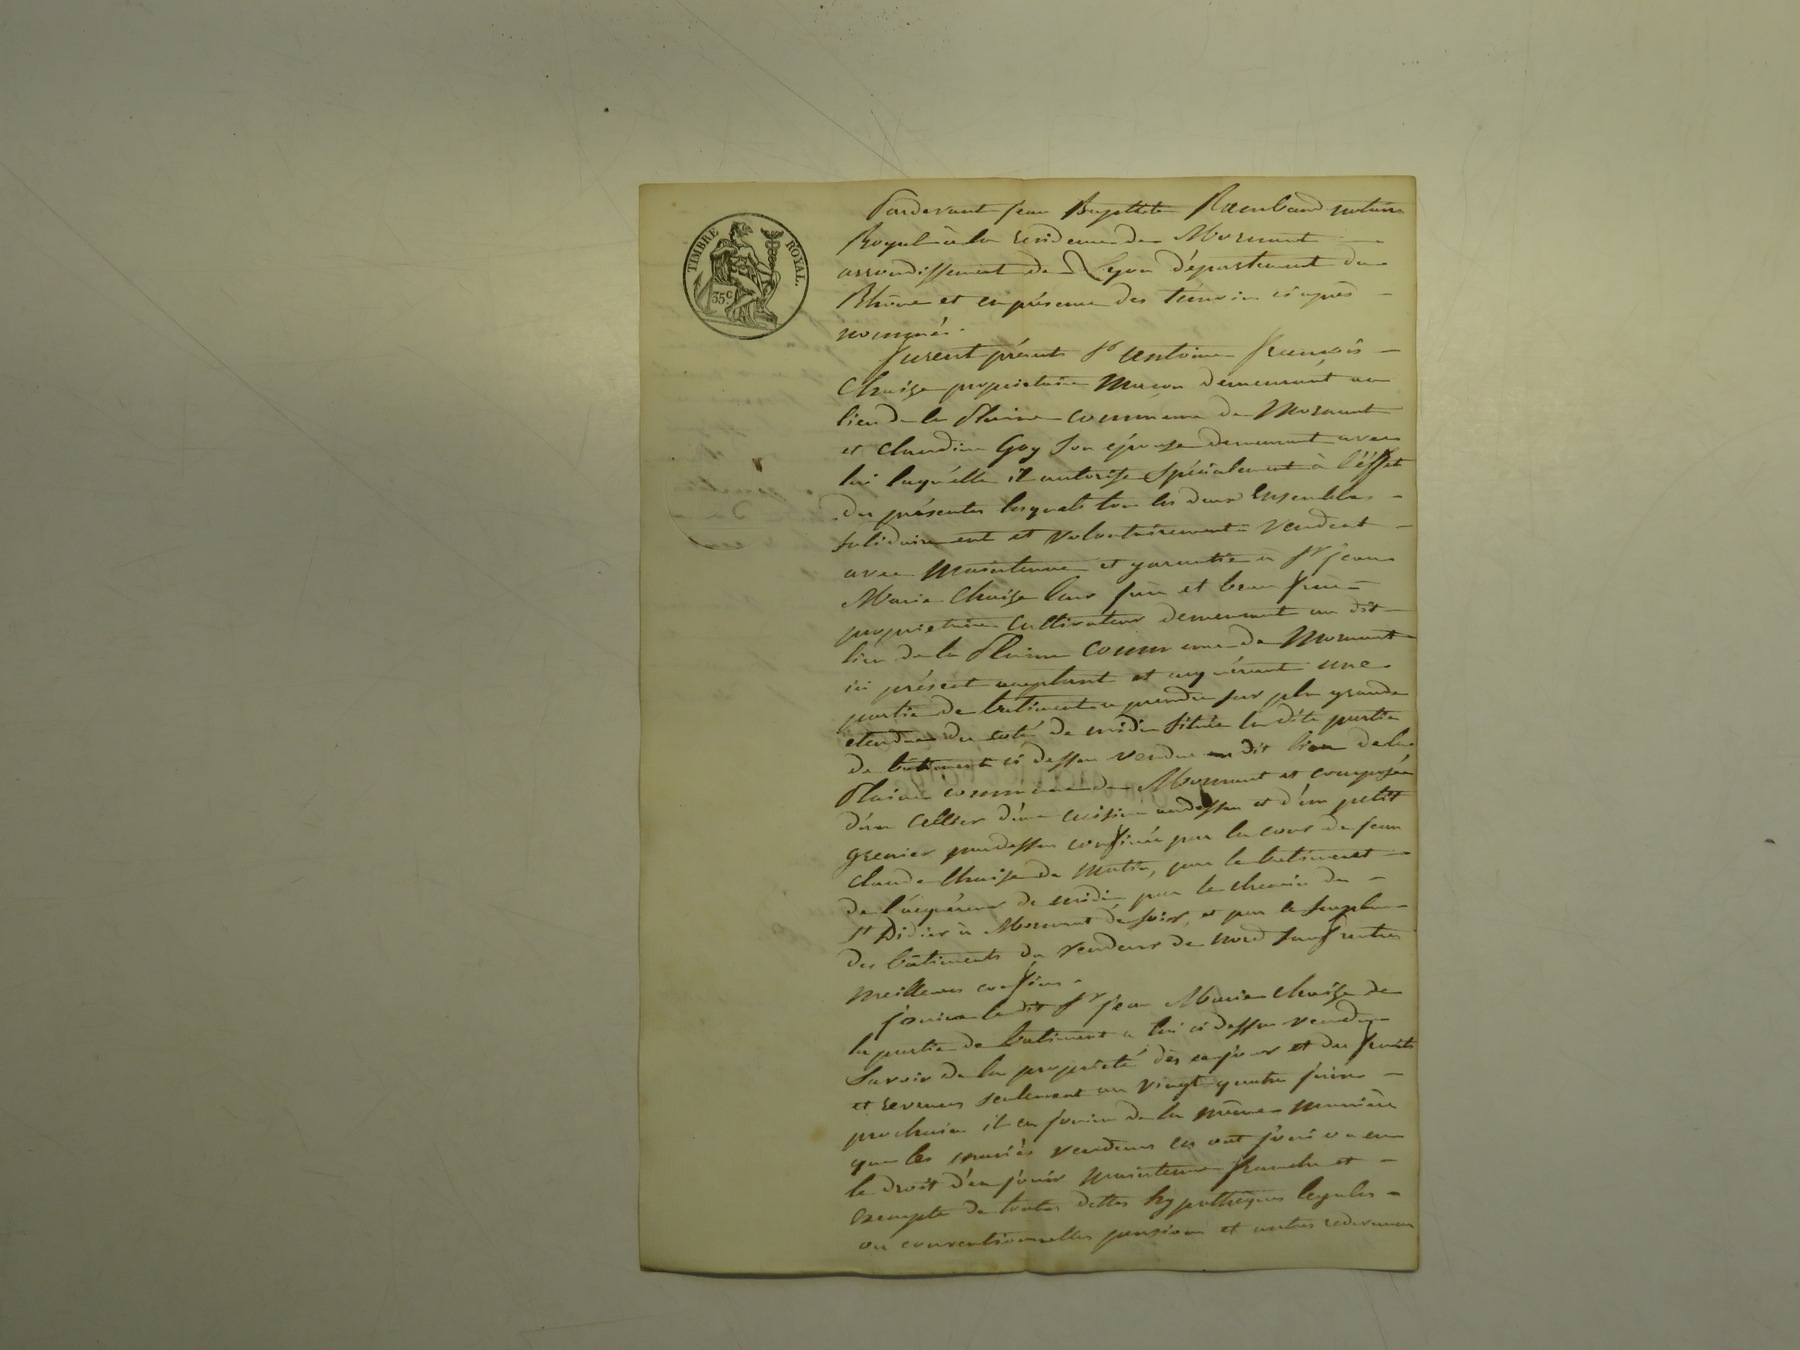 TIMBRE ROYAL.
35c
Pardevant jean Baptiste Raimbaud notaire
Royal à la residence de Mornant
arrondissement de Lyon département du
Rhône et en présence des témoins ci après
nommés.
furent présents Sr antoine françois
Chaize proprietaire Maçon demeurant au
lieu de la Plaine commune de Mornant
et claudine Goy son épouse demeurant avec
lui laquélle il autorise spécialement à l'éffet
des présentes lesquels tous les deux Ensembles
solidairement et volontairement vendent
avec Maintenue et garantie a Sr jean
Marie Chaize leur frere et beau frere
proprietaire Cultivateur demeurant au dit
lieu de la Plaine Commune de Mornant
ici présent acceptant et acquérant une
partie de batiments a prendre sur plus grande
etendue du coté de midi située la dite partie
de batiments ci dessus vendue au dit lieu de la
Plaine commune de Mornant et composée
d'un Cellier d'une cuisine audessus et d'un petit
grenier pardessus confinée par la cour de jean
claude Chaize de Matin, par le batiment
de l'acquéreur de midi par le chemin de
St Didier à Mornant de soir, et par le surplus
des bâtiments du vendeur de nord sauf autres
meilleurs confins.
jouira le dit Sr jean Marie chaize de
la partie de batiment a lui ci dessus vendue
Savoir de la propriété dès ce jour et des fruits
et revenus seulement au vingt quatre juin
prochain il en jouira de la même manière
que les mariés vendeurs en ont joui ou eu
le droit d'en jouir Maintenue franche et
exempte de toutes dettes hypotheques legales
ou conventionnelles pensions et autres redevances